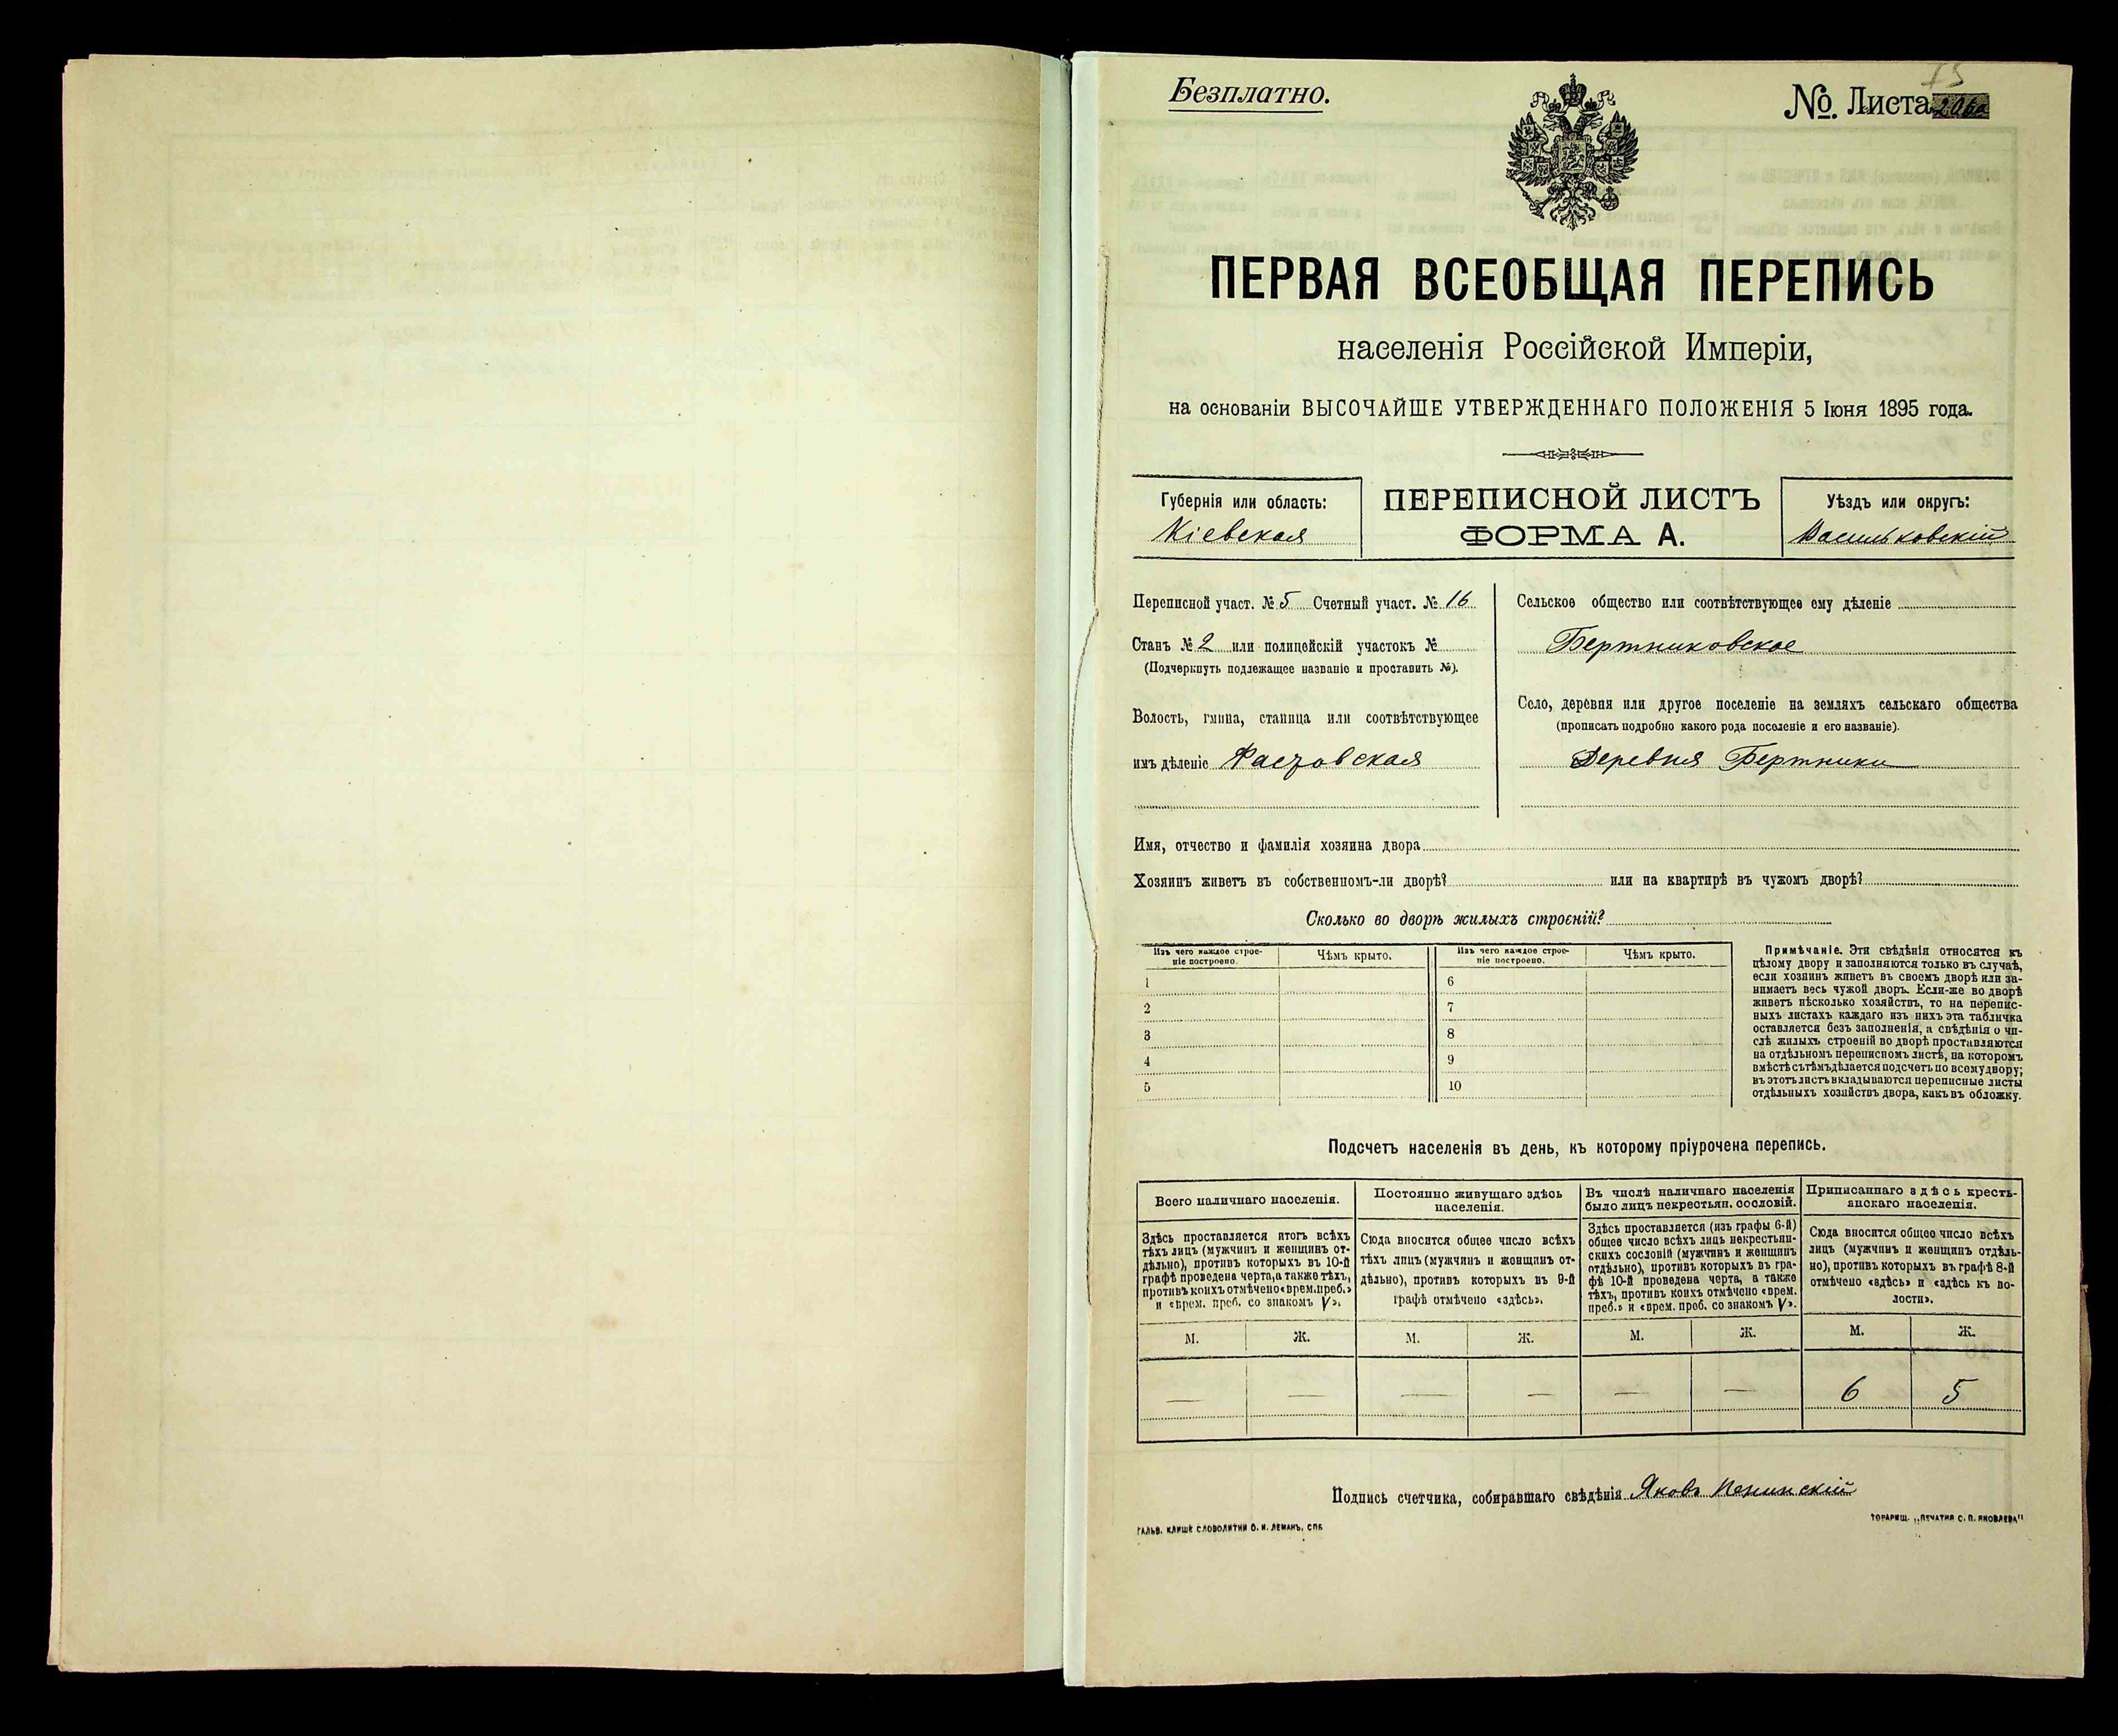 Безплатно.
№ Листа
ПЕРВАЯ ВСЕОБЩАЯ ПЕРЕПИСЬ
населенія Россійской Имперіи,
на основаніи ВЫСОЧАЙШЕ УТВЕРЖДЕННАГО ПОЛОЖЕНІЯ 5 Іюня 1895 года.
Губернія или область:
Кіевская
ПЕРЕПИСНОЙ ЛИСТЪ
ФОРМА А.
Уѣздъ или округъ:
Васильковскій
Переписной участ. № 5 Счетный участ. № 16
Станъ № 2 или полицейскій участокъ №
(Подчеркнуть подлежащее названіе и проставить №).
Волость, гмина, станица или соотвѣтствующее
имъ дѣленіе Фастовская
Сельское общество или соотвѣтствующее ему дѣленіе
Бертниковское
Село, деревня или другое поселеніе на земляхъ сельскаго общества
(прописать подробно какого рода поселеніе и его названіе).
Деревня Бертники
Имя, отчество и фамилія хозяина двора
Хозяинъ живетъ въ собственномъ-ли дворѣ? или на квартирѣ въ чужомъ дворѣ?
Сколько во дворѣ жилыхъ строеній?
Изъ чего каждое строе-
ніе построено.
Чѣмъ крыто.
Изъ чего каждое строе-
ніе построено.
Чѣмъ крыто.
1 6
2 7
3 8
4 9
5 10
Примѣчаніе. Эти свѣдѣнія относятся къ
цѣлому двору и заполняются только въ случаѣ,
если хозяинъ живетъ въ своемъ дворѣ или за-
нимаетъ весь чужой дворъ. Если-же во дворѣ
живетъ нѣсколько хозяйствъ, то на перепис-
ныхъ листахъ каждаго изъ нихъ эта табличка
оставляется безъ заполненія, а свѣдѣнія о чи-
слѣ жилыхъ строеній во дворѣ проставляются
на отдѣльномъ переписномъ листѣ, на которомъ
вмѣстѣ съ тѣмъ дѣлается подсчетъ по всему двору;
въ этотъ листъ вкладываются переписные листы
отдѣльныхъ хозяйствъ двора, какъ въ обложку.
Подсчетъ населенія въ день, къ которому пріурочена перепись.
Всего наличнаго населенія.
Здѣсь проставляется итогъ всѣхъ
тѣхъ лицъ (мужчинъ и женщинъ от-
дѣльно), противъ которыхъ въ 10-й
графѣ проведена черта, а также тѣхъ,
противъ коихъ отмѣчено «врем. преб.»
и «врем. преб. со знакомъ V».
Постоянно живущаго здѣсь
населенія.
Сюда вносится общее число всѣхъ
тѣхъ лицъ (мужчинъ и женщинъ от-
дѣльно), противъ которыхъ въ 9-й
графѣ отмѣчено «здѣсь».
Въ числѣ наличнаго населенія
было лицъ некрестьян. сословій.
Здѣсь проставляется (изъ графы 6-й)
общее число всѣхъ лицъ некрестьян-
скихъ сословій (мужчинъ и женщинъ
отдѣльно), противъ которыхъ въ гра-
фѣ 10-й проведена черта, а также
тѣхъ, противъ коихъ отмѣчено «врем.
преб.» и «врем. преб. со знакомъ V».
Приписаннаго здѣсь кресть-
янскаго населенія.
Сюда вносится общее число всѣхъ
лицъ (мужчинъ и женщинъ отдѣль-
но), противъ которыхъ въ графѣ 8-й
отмѣчено «здѣсь» и «здѣсь къ во-
лости».
М. Ж. М. Ж. М. Ж. М. Ж.
— — — — — — 6 5
Подпись счетчика, собиравшаго свѣдѣнія Яковъ
ГАЛЬВ. КЛИШЕ СЛОВОЛИТНИ О. И. ЛЕМАНЪ, СПБ.
ТОВАРИЩ. „ПЕЧАТНЯ С. П. ЯКОВЛЕВА"